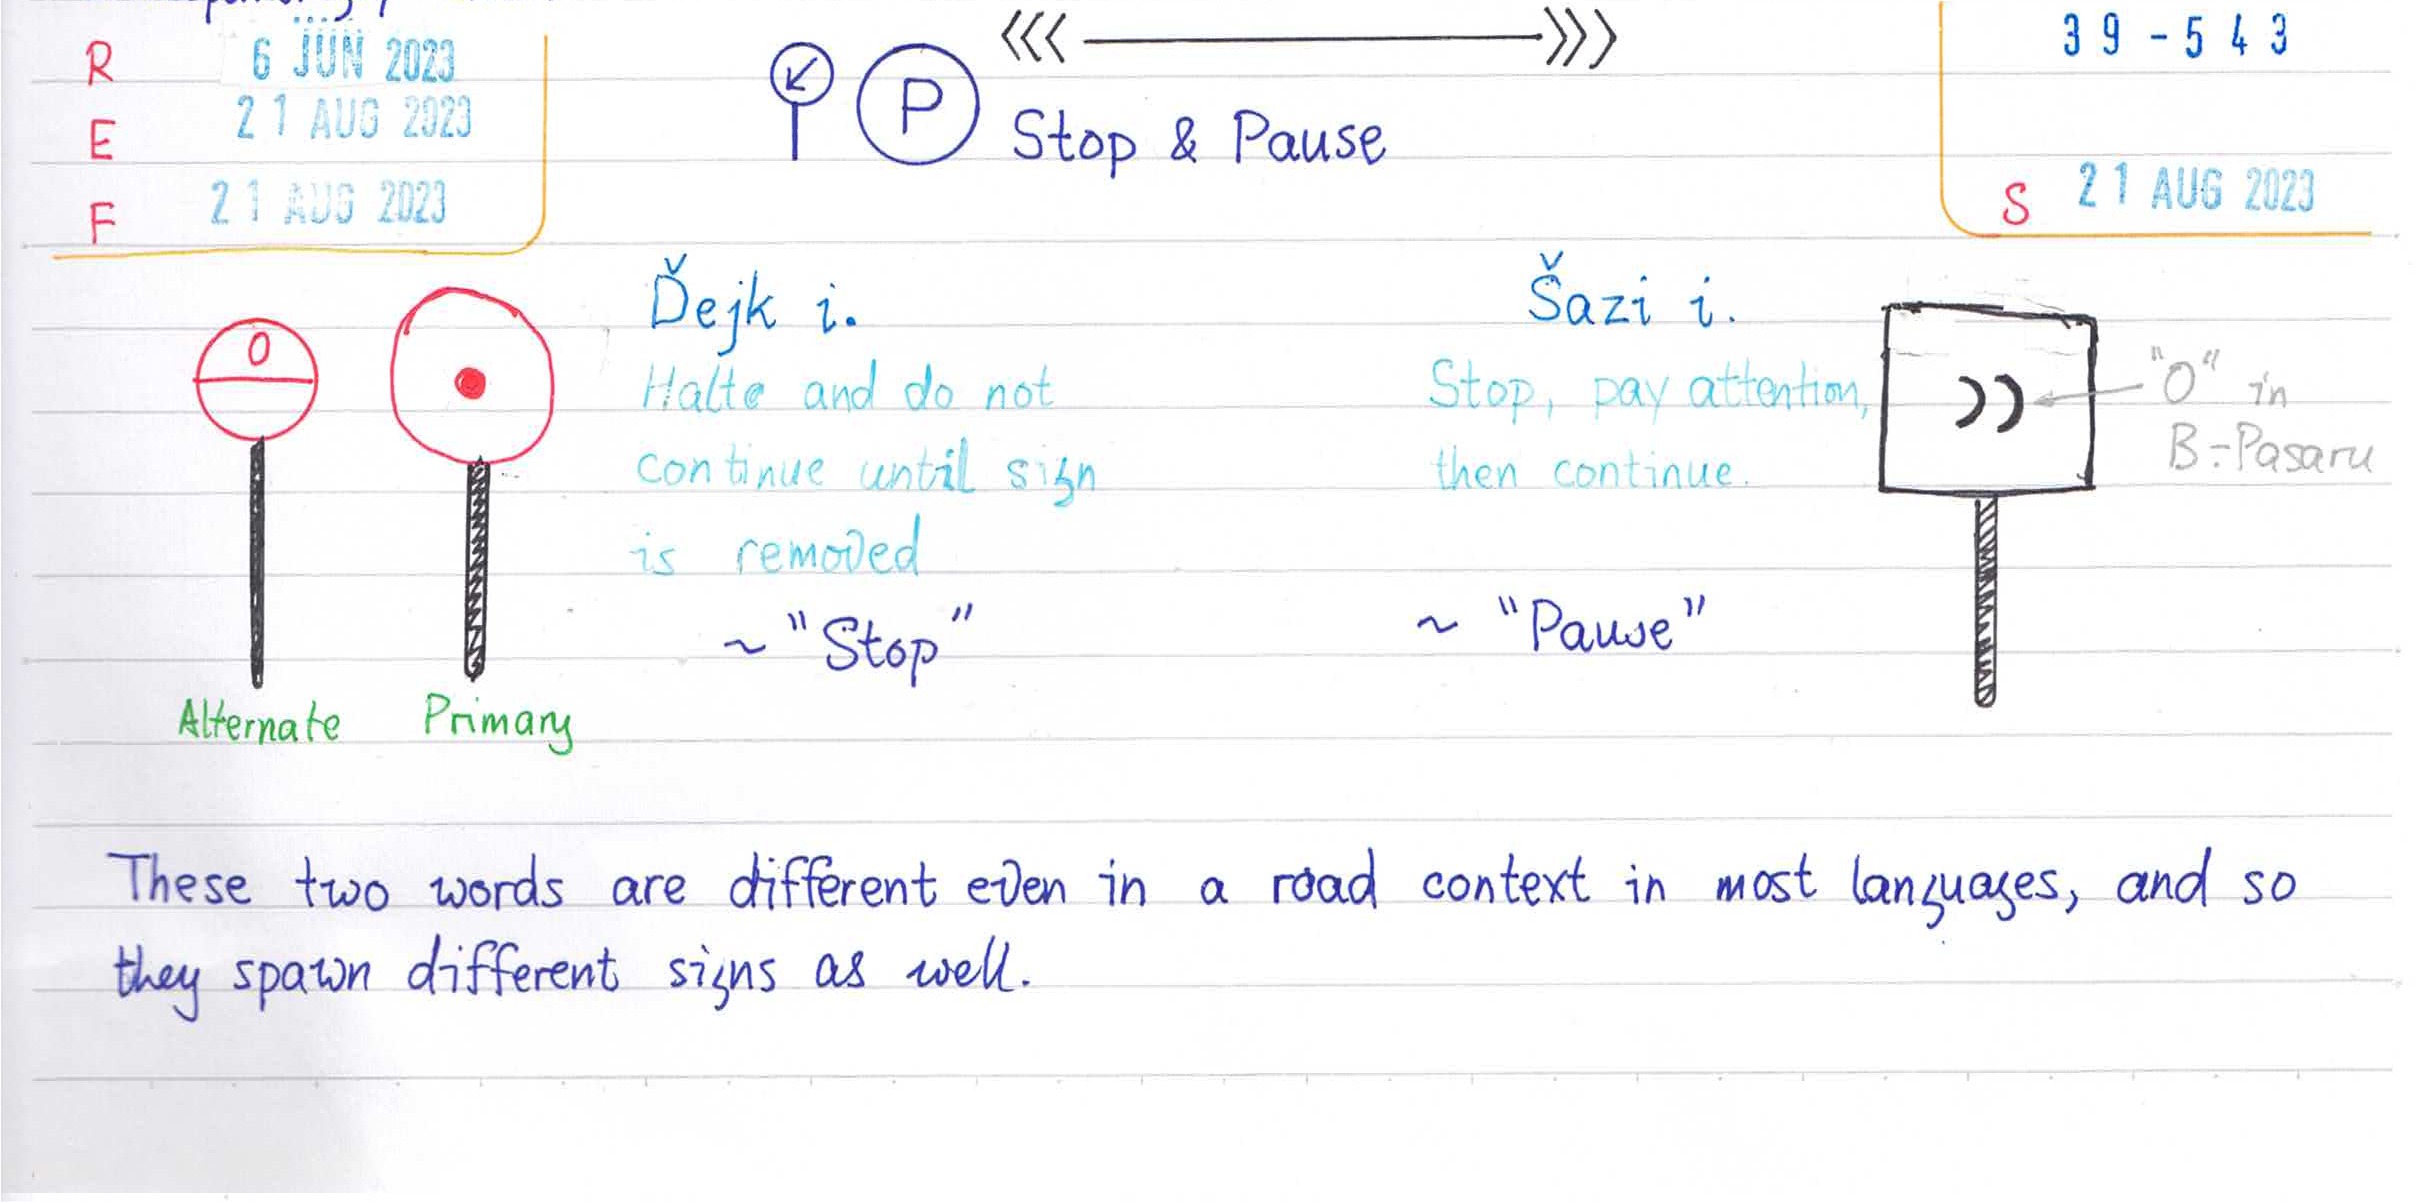 R 6 JUN 2023
E 21 AUG 2023
F 21 AUG 2023
P Stop & Pause
39-543
S 21 AUG 2023
0
Ďejk i.
Halte and do not
continue until sign
is removed
~ "Stop"
Alternate
Primary
Šazi i.
Stop, pay attention,
then continue.
~ "Pause"
"0" in
B÷Pasaru
These two words are different even in a road context in most languages, and so
they spawn different signs as well.